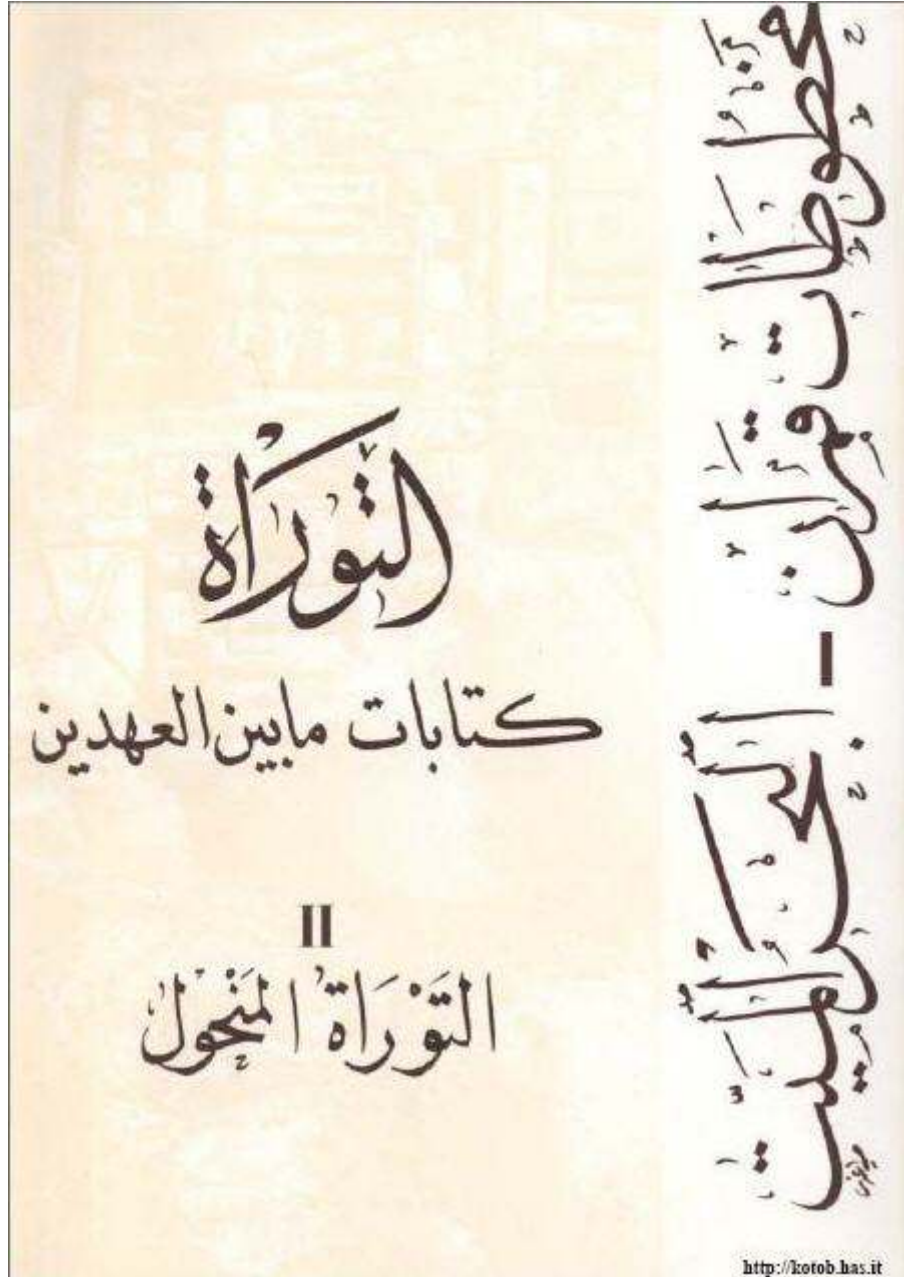 مخطوطات قمران - البحر الميت
التوراة
كتابات مابين العهدين
II
التوراة المنحول
http://kotob.has.it